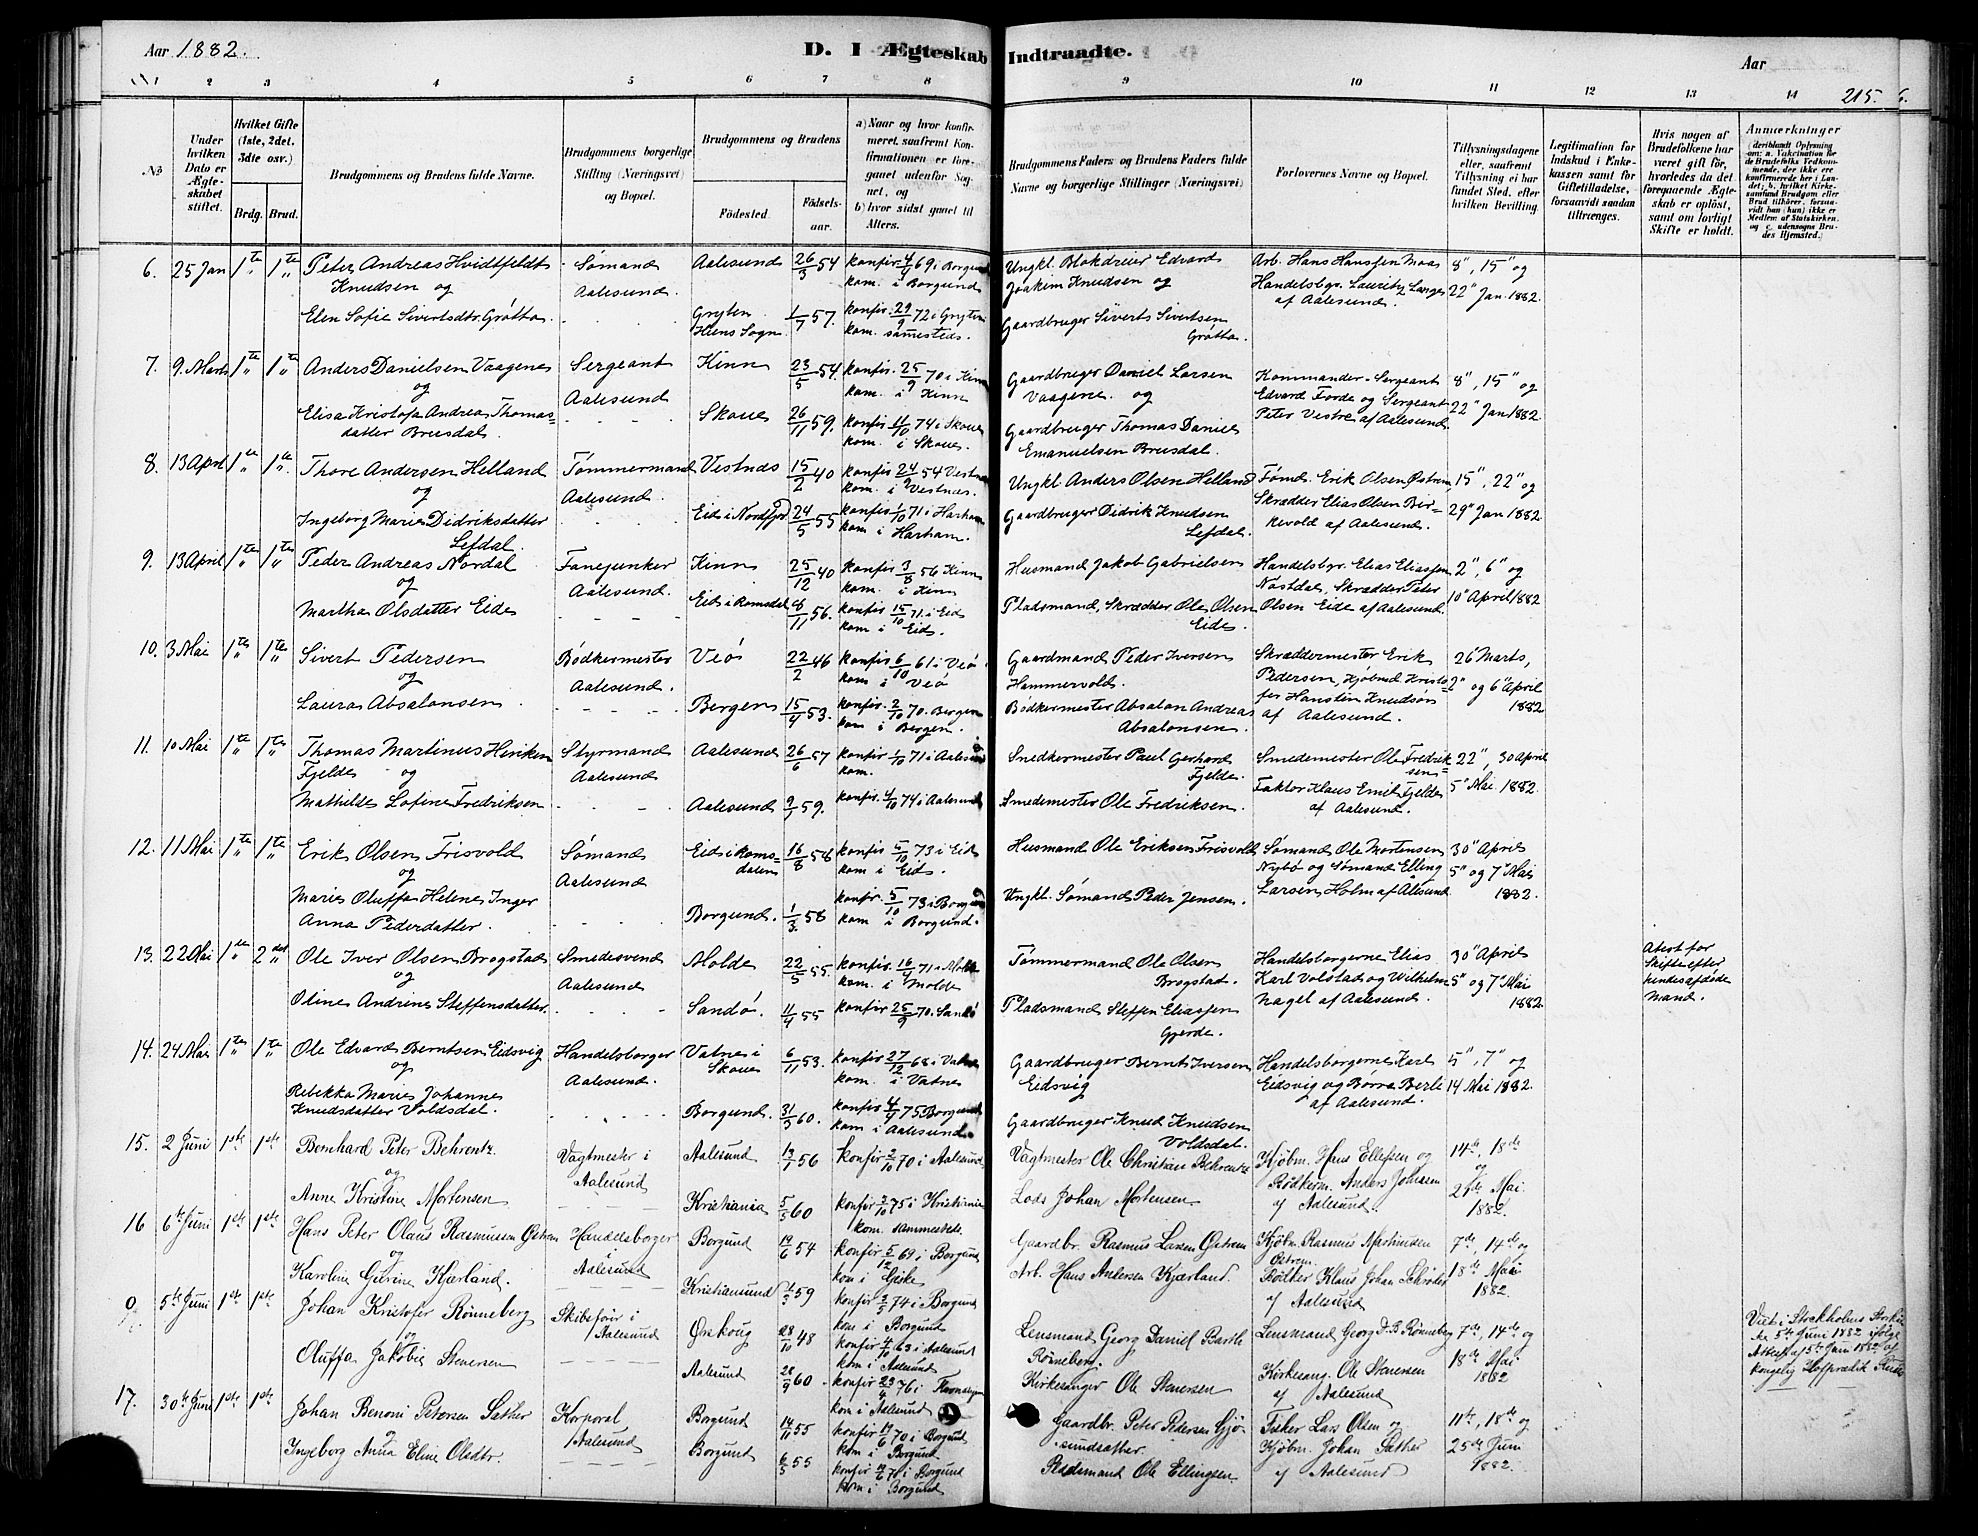 Aar 1882.
D. I Ægteskab Indtraadte.
Aar
215. 6.
1 2 3 4 5 6 7 8 9 10 11 12 13 14
№
Under hvilken Dato er Ægteskabet stiftet.
Hvilket Gifte (1ste, 2det, 3die osv.)
Brdg. Brud.
Brudgommens og Brudens fulde Navne.
Brudgommens borgerlige Stilling (Næringsvei) og Bopæl.
Brudgommens og Brudens
Födested.
Födselsaar.
a) Naar og hvor konfirmeret, saafremt Konfirmationen er foregaaet udenfor Sognet, og
b) hvor sidst gaaet til Alters.
Brudgommens Faders og Brudens Faders fulde Navne og borgerlige Stillinger (Næringsvei)
Forlovernes Navne og Bopæl.
Tillysningsdagene eller, saafremt Tillysning ei har fundet Sted, efter hvilken Bevilling.
Legitimation for Indskud i Enkekassen samt for Giftetilladelse, forsaavidt saadan tiltrænges.
Hvis nogen af Brudefolkene har været gift för, hvorledes da det foregaaende Ægteskab er oplöst, samt om lovligt Skifte er holdt.
Anmærkninger
(deriblandt Oplysning om: a. Vakcination for de Brudefolks Vedkommende, der ikke ere konfirmerede her i Landet; b. hvilket Kirkesamfund Brudgom eller Brud tilhörer, forsaavidt han (hun) ikke er Medlem af Statskirken, og c. udensogns Brudes Hjemsted.)
6. 25 Jan 1te 1te Peter Andreas Hvidtfeldt Knudsen og Sømand Aalesund. Aalesund 26/3 54 konfir. 4/9 69 i Borgund kom. i Borgund Ungkl. Blokdreier Edvard Joakim Knudsen og Arb. Hans Hanssen Moas Handelsbgr. Lauritz Langes af Aalesund. 8", 15" og 22" Jan. 1882.
Elen Sofie Sivertsdtr. Grøtta. Gryten Hens Sogn 1/7 57. konfir. 29/9 72 i Gryten kom. samesteds. Gaardbruger Siverts Sivertsen Grøtta
7. 9. Marts 1te 1te Anders Danielsen Vaagene og Sergeant Aalesund Kinn 23/5 54. konfir. 25/9 70 i Kinn kom. i Kinn Gaardbruger Daniel Larsen Vaagene og Kommander-Sergeant Edvard Forde og Sergeant Peter Vestre af Aalesund. 8", 15" og 22" Jan 1882.
Elisa Kristofa Andrea Thomasdatter Brusdal. Skoue 26/11 59. konfir. 11/10 74 i Skoue kom. i Skoue. Gaardbruger Thomas Daniel Emanuelsen Brusdal.
8. 13 April 1te 1te Thore Andersen Helland og Tømmermand Aalesund. Vestnæs 15/2 40 konfir 24/9 54 Vestnæs kom. i Vestnæs. Ungkl. Anders Olsen Helland Tømd. Erik Olsen Østrem, Skrædder Elias Olsen Birkevold af Aalesund. 15", 22" og 29" Jan 1882.
Ingeborg Marie Didriksdatter Lefdal. Eid i Nordfjord 24/5 55 konfir 1/10 71 i Harham kom i Harham. Gaardbruger Didrik Knudsen Lefdal.
9. 13 April 1te 1te Peder Andreas Nordal og Fanejunker Aalesund. Kinn 25/12 40 konfir 3/8 56 Kinn kom. i Kinn Husmand Jakob Gabrielsen Handelsbgr. Elias Eliassen Nøstdal, Skrædder Peter Olsen Eide af Aalesund. 2", 6" og 10" April 1882
Martha Olsdatter Eide Eid i Romsdal 8/11 56. konfir 15/10 71 i Eid kom i Eid. Pladsmand, Skrædder Ole Olsen Eide.
10. 3 Mai 1te 1te Sivert Pedersen og Bødkermester Aalesund. Veø 22/2 46 konfir 6/10 61 i Veø kom i Veø Gaardmand Peder Iversen Hammervold. Skræddermester Erik Pedersen, Kjøbmd Kristofer Hanstin Knudsøn af Aalesund. 26 Marts, 2" og 6" April 1882
Laura Absalonsen. Bergen 15/4 53. konfir 2/10 70. Bergen kom. i Bergen. Bødkermester Absalon Andreas Absalonsen.
11. 10 Mai 1te 1te Thomas Martinus Heriksen Fjelde og Styrmand Aalesund Aalesund 26/6 57 konfir 1/10 71 i Aalesund kom. Snedkermester Paul Gerhard Fjelde. Smedemester Ole Fredriksen Faktor Klaus Emil Fjelde af Aalesund. 22", 30 April 5" Mai. 1882.
Mathilde Lofine Fredriksen Aalesund 59. konfir. 4/10 74 i Aalesund Smedemester Ole Fredriksen.
12. 11 Mai 1te 1te Erik Olsen Frisvold og Sømand Aalesund Eid i Romsdalen 16/8 58 konfir 5/10 73 i Eid kom i Eid. Husmand Ole Eriksen Frisvold Sømand Ole Mortensen Nybø og Sømand Elling Larsen Holm af Ålesund 30" April 5" og 7" Mai 1882.
Marie Oluffa Helene Inger Anna Pedersdatter. Borgund. 1/3 58 konfir. 5/10 73 i Borgund kom i Borgund. Ungkl. Sømand Peder Jensen.
13. 22 Mai 1te 2det Ole Iver Olsen Brogstad og Smedesvend Aalesund Molde 22/5 55 konfir 16/4 71 i Molde kom. i Molde Tømmermand Ole Olsen Brogstad. Handelsborgerne Elias Karl Volstad og Wilhelm Nagel af Aalesund. 30" April 5" og 7" Mai 1882. Atest for Skifte efter hendes afdøde Mand.
Oline Andrine Steffensdatter. Sandø. 11/4 55 konfir 25/9 70. Sandø Pladsmand Steffen Eliassen Gjerde.
14. 24 Mai 1te 1te Ole Edvard Berntsen Eidsvig og Handelsborger Aalesund. Vatne i Skoue 6/11 53. konfir 27/12 68 i Vatne kom. i Vatne Gaardbruger Bernt Iversen Eidsvig Handelsborgerne Karl Eidsvig og Børre Berli af Aalesund. 5", 7" og 14 Mai 1882.
Rebekka Marie Johanne Knudsdatter Voldsdal. Borgund. 31/3 60. konfir 4/4 75 Borgund kom i Aalesund. Gaardbruger Knud Knudsen Voldsdal.
15. 2 Juni 1ste 1ste Bernhard Peter Behrentz og Vagtmester i Aalesund Aalesund 13/1 56 konfir 2/10 70 i Aalesund Vagtmester Ole Christian Behrentz Kjøbm. Hans Ellefsen og Bødkerm. Anders Johnsen af Aalesund. 14de, 18de og 21de Mai 1882.
Anne Kristine Mortensen Kristiania 5/5 60 konfir 3/10 75 i Kristiania kom. sammesteds. Lods Johan Mortensen
16 6te Juni 1ste 1ste Hans Peter Olaus Rasmussen Østrem og Handelsborger Aalesund Borgund 19/6 54 konfir 5/12 69 i Borgund kom i Giske Gaardbr. Rasmus Larsen Østrem Kjøbm. Rasmus Martinusen Østrem. Bødker Klaus Johan Schrøder af Aalesund 7de, 14de og 18de Mai 1882.
Karoline Gurine Kjærland. Kristiansund 1/3 59 konfir 3/5 74 i Borgund kom i Borgund Arb. Hans Andersen Kjærland.
9. 5te Juni 1ste 1ste Johan Kristofer Rönneberg og Skibsförer i Aalesund Ørskoug 28/10 48 konfir 4/10 63 i Aalesund kom i Aalesund Lensmand Georg Daniel Barth Rönneberg. Lensmand Georg D. B. Rönneberg Kirkesang. Ole Stenersen af Aalesund 7de, 14de og 18de Mai 1882 Viet i Stockholms Storkirke 5te Juni 1882 ifølge Attest af 5te Juni 1882 af kongelig Hofprædik
Oluffa Jakobia Stenersen Aalesund 28/9 60 konfir 23/4 76 i kom i Aalesund Kirkesanger Ole Stenersen
17. 30te Juni 1ste 1ste Johan Benoni Petersen Sather og Korporal Aalesund Borgund 14/11 55 konfir 19/6 70 i Borgund kom i Borgund Gaardbr. Peter Pedersen Gjøsundsather. Fisker Lars Olsen og Kjøbm. Johan Sather af Aalesund 11te, 18de og 25de Juni 1882.
Ingeborg Anna Eline Olsdtr. Borgund 6/5 55 konfir i Borgund kom i Borgund Pladsmand Ole Ellingsen